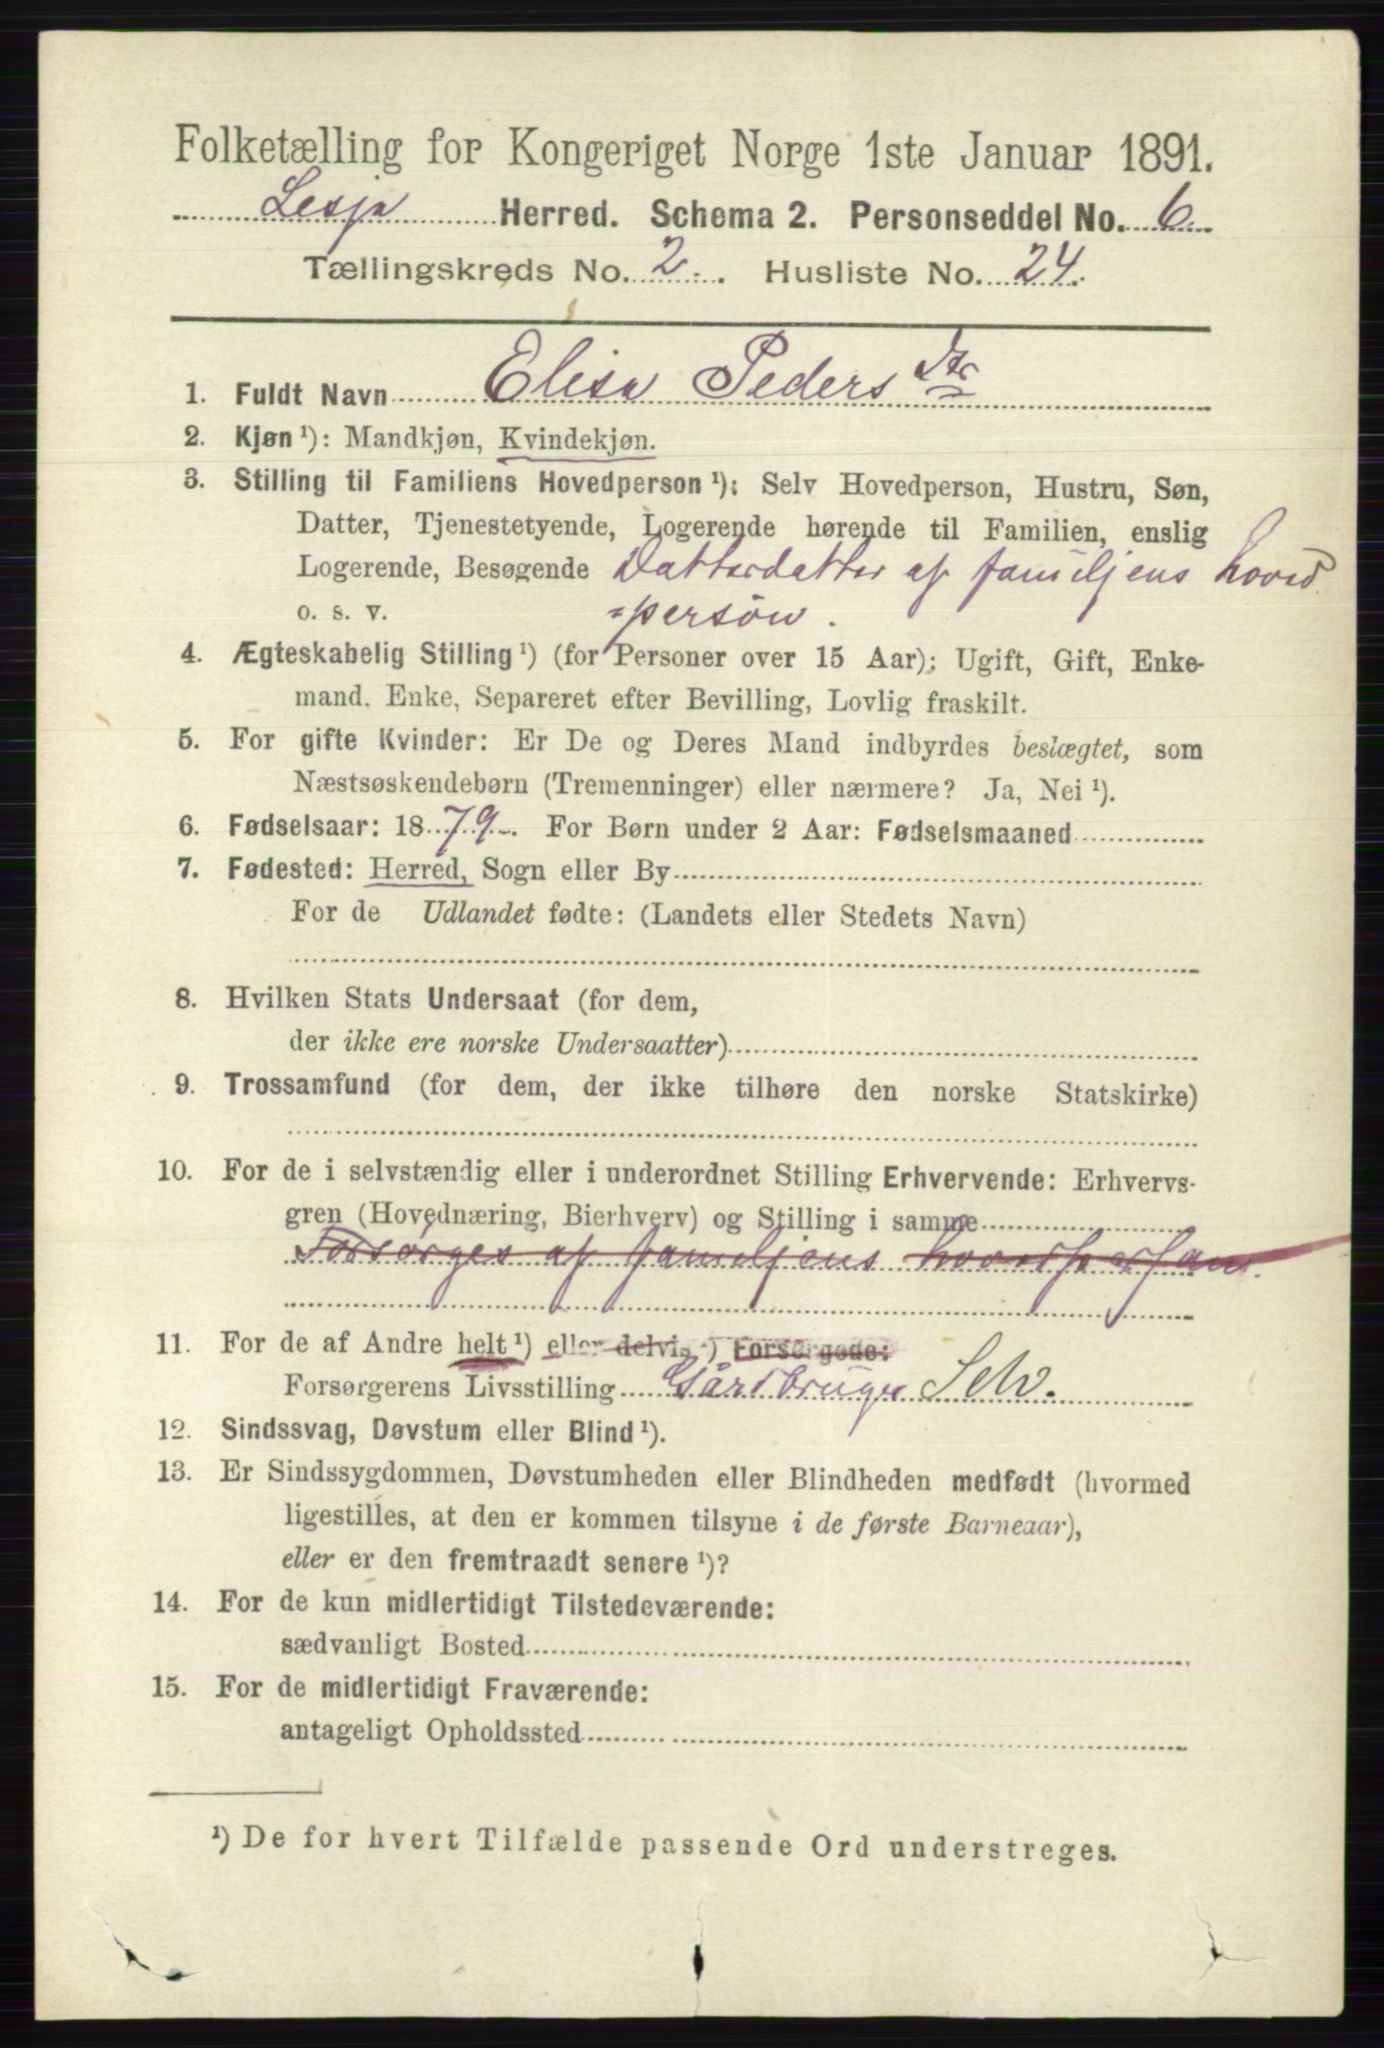 Folketælling for Kongeriget Norge 1ste Januar 1891.
Lesja Herred. Schema 2. Personseddel No. 6
Tællingskreds No. 2. Husliste No. 24.
1. Fuldt Navn Elisa Peders dtr
2. Kjøn ¹): Mandkjøn, Kvindekjøn.
3. Stilling til Familiens Hovedperson ¹): Selv Hovedperson, Hustru, Søn,
Datter, Tjenestetyende, Logerende hørende til Familien, enslig
Logerende, Besøgende Datterdatter af familjens hoved
o. s. v. =person.
4. Ægteskabelig Stilling ¹) (for Personer over 15 Aar): Ugift, Gift, Enke-
mand, Enke, Separeret efter Bevilling, Lovlig fraskilt.
5. For gifte Kvinder: Er De og Deres Mand indbyrdes beslægtet, som
Næstsøskendebørn (Tremenninger) eller nærmere? Ja, Nei ¹).
6. Fødselsaar: 1879. For Børn under 2 Aar: Fødselsmaaned
7. Fødested: Herred, Sogn eller By
For de Udlandet fødte: (Landets eller Stedets Navn)
8. Hvilken Stats Undersaat (for dem,
der ikke ere norske Undersaatter)
9. Trossamfund (for dem, der ikke tilhøre den norske Statskirke)
10. For de i selvstændig eller i underordnet Stilling Erhvervende: Erhvervs-
gren (Hovednæring, Bierhverv) og Stilling i samme
Forsørges af familjens hovedperson.
11. For de af Andre helt ¹) eller delvis ¹) Forsørgede:
Forsørgerens Livsstilling Gårdbruger Selv.
12. Sindssvag, Døvstum eller Blind ¹).
13. Er Sindssygdommen, Døvstumheden eller Blindheden medfødt (hvormed
ligestilles, at den er kommen tilsyne i de første Barneaar),
eller er den fremtraadt senere ¹)?
14. For de kun midlertidigt Tilstedeværende:
sædvanligt Bosted
15. For de midlertidigt Fraværende:
antageligt Opholdssted
¹) De for hvert Tilfælde passende Ord understreges.